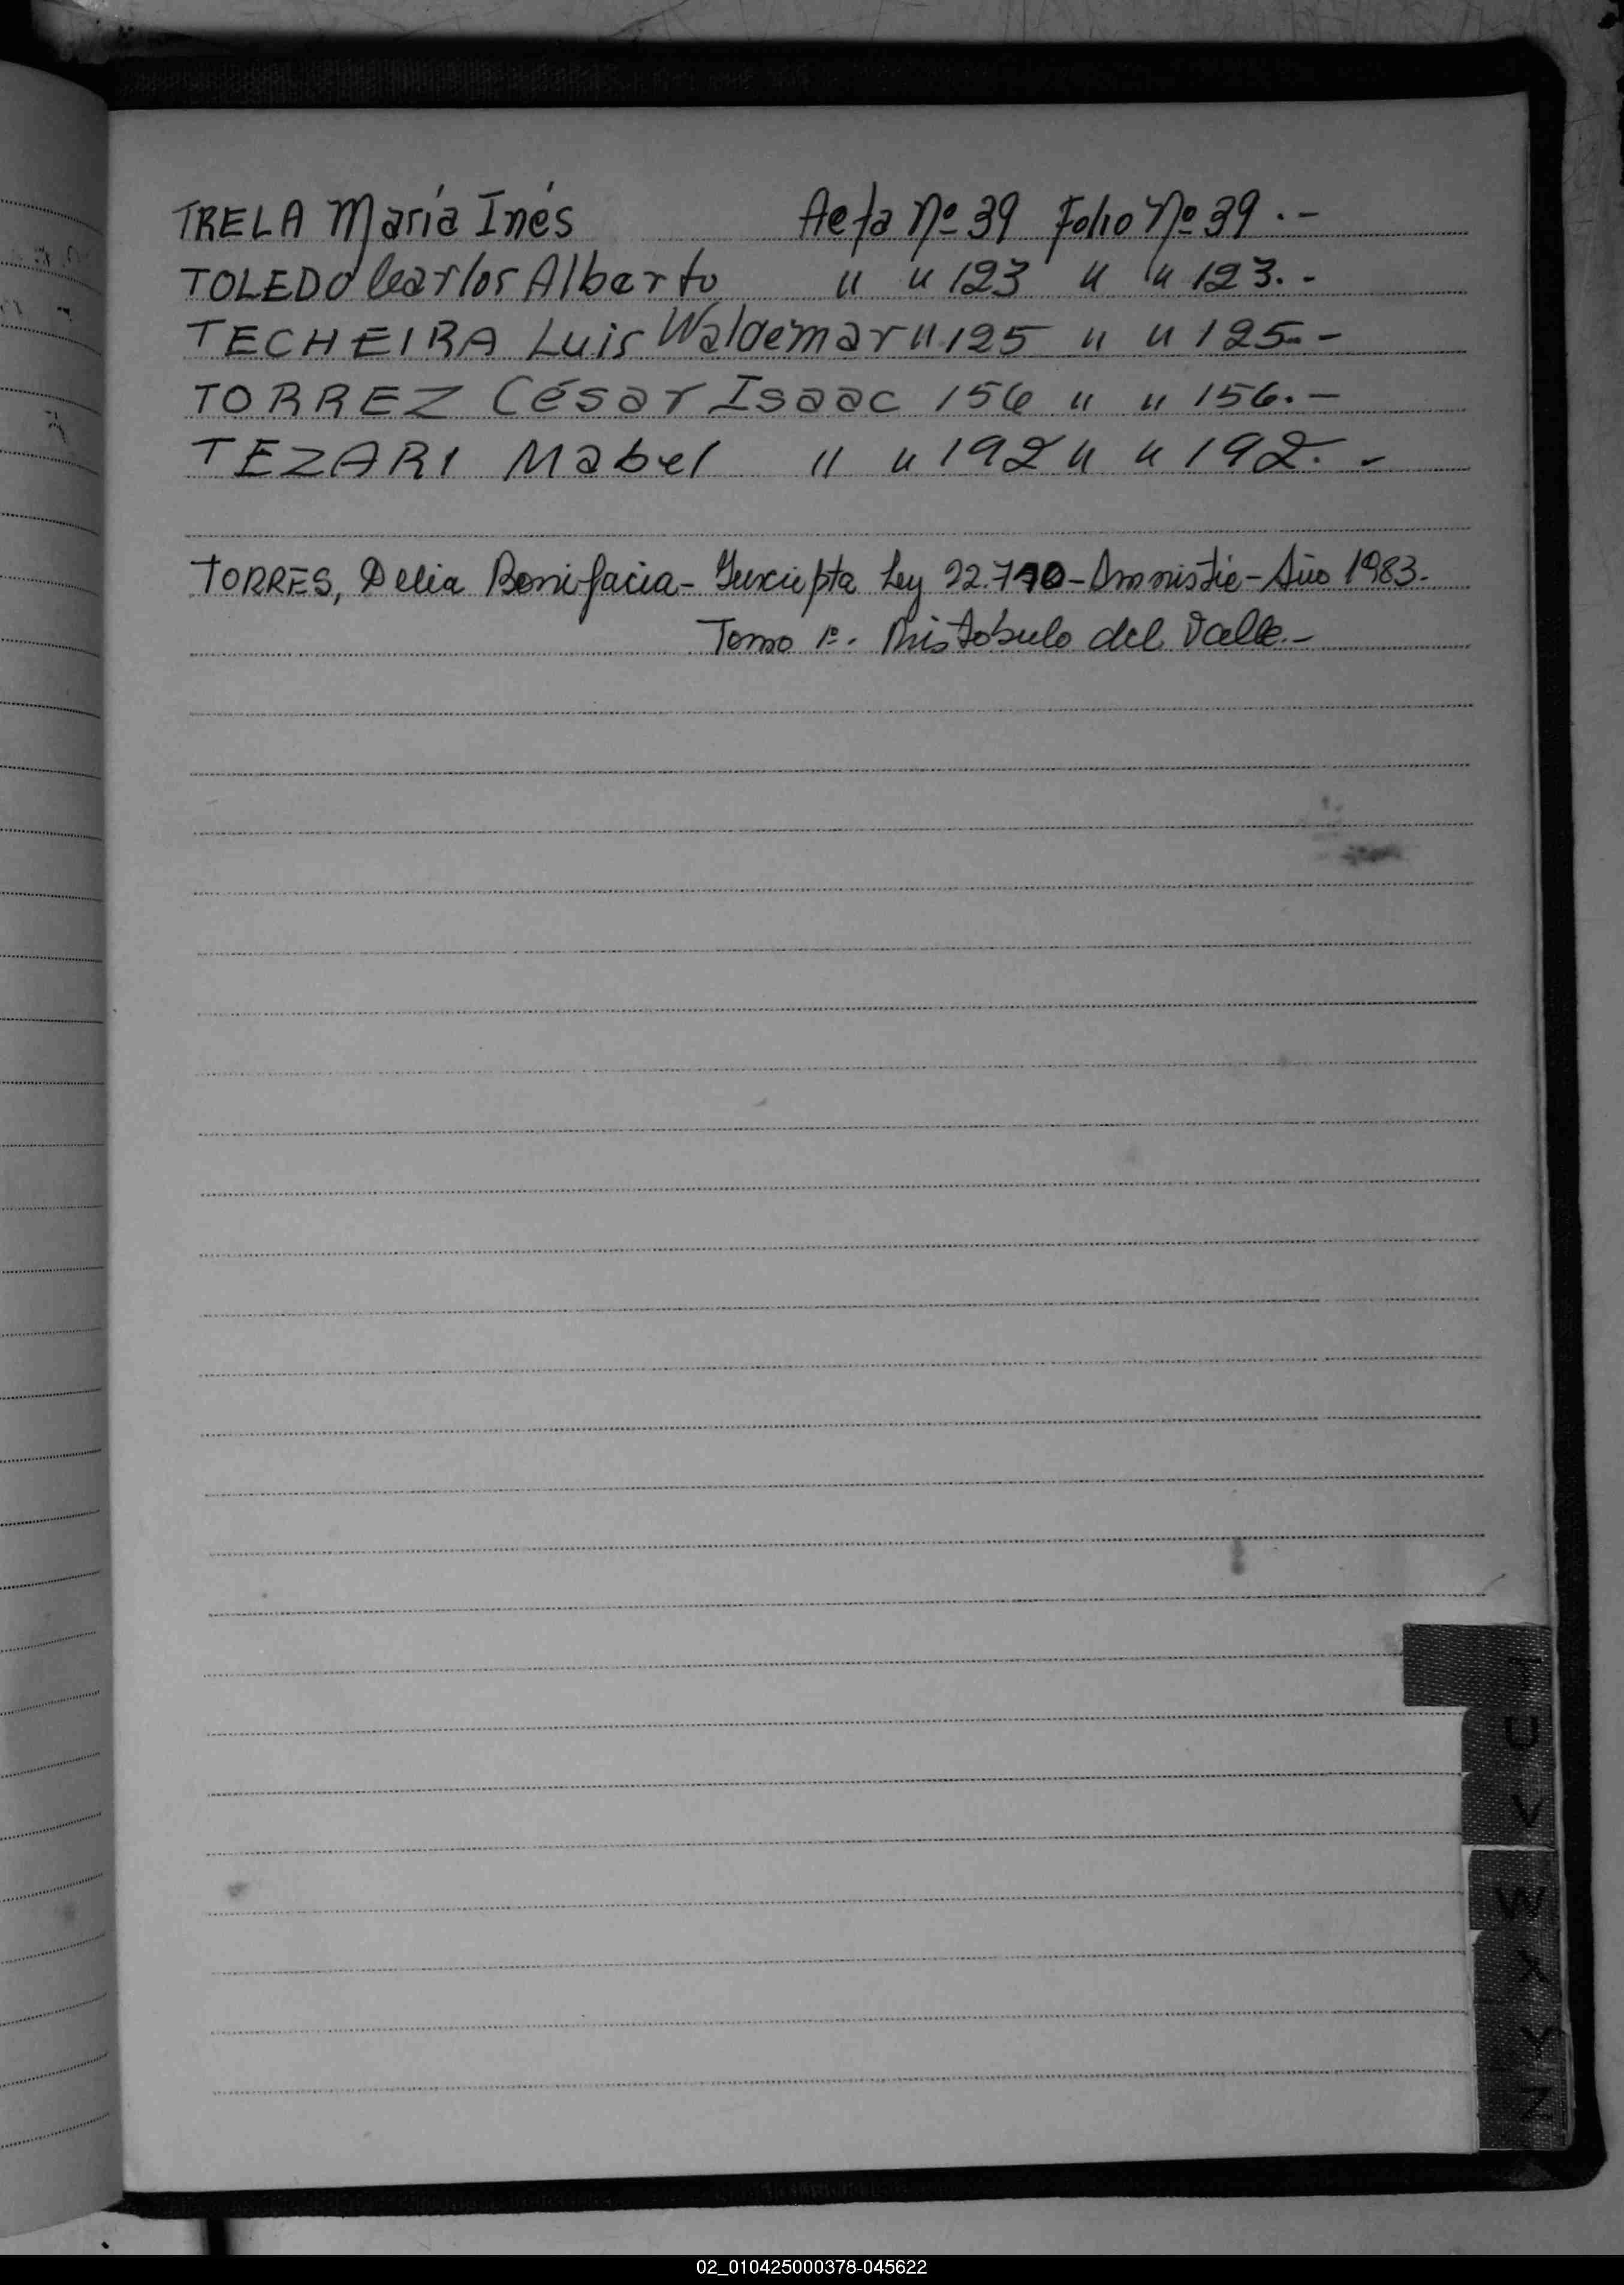 TRELA María Inés Acta Nº 39 Folio Nº 39.-
TOLEDO Carlos Alberto " " 123 " " 123.-
TECHEIRA Luis Waldemar " 125 " " 125.-
TORREZ César Isaac 156 " " 156.-
TEZARI Mabel " " 192 " " 192.-
TORRES, Delia Bonifacia- Inscripta Ley 22.770-Amnistía-Año 1983.
Tomo 1º. Aristobulo del Valle.-
T
U
V
W
X
Y
Z
02_010425000378-045622